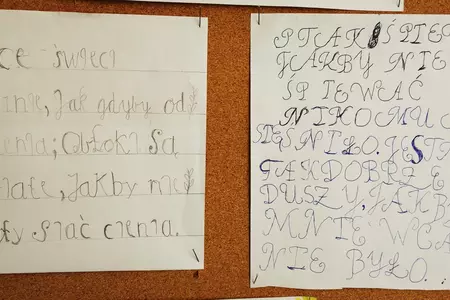 ce świeci
znie, jak gdyby od
enia; Obłoki są
iałe, jakby nie
ły siać cienia.
PTAK ŚPIE
JAKBY NIE
ŚPIEWAĆ
NIKOMU
SIĘ ŚNIŁO. JEST
TAK DOBRZE
DUSZY, JAKB
MNIE WCA
NIE BYŁO.